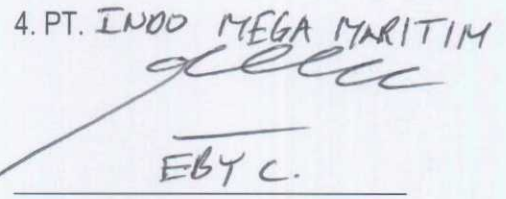 4. PT. INDO MEGA MARITIM
EBY C.